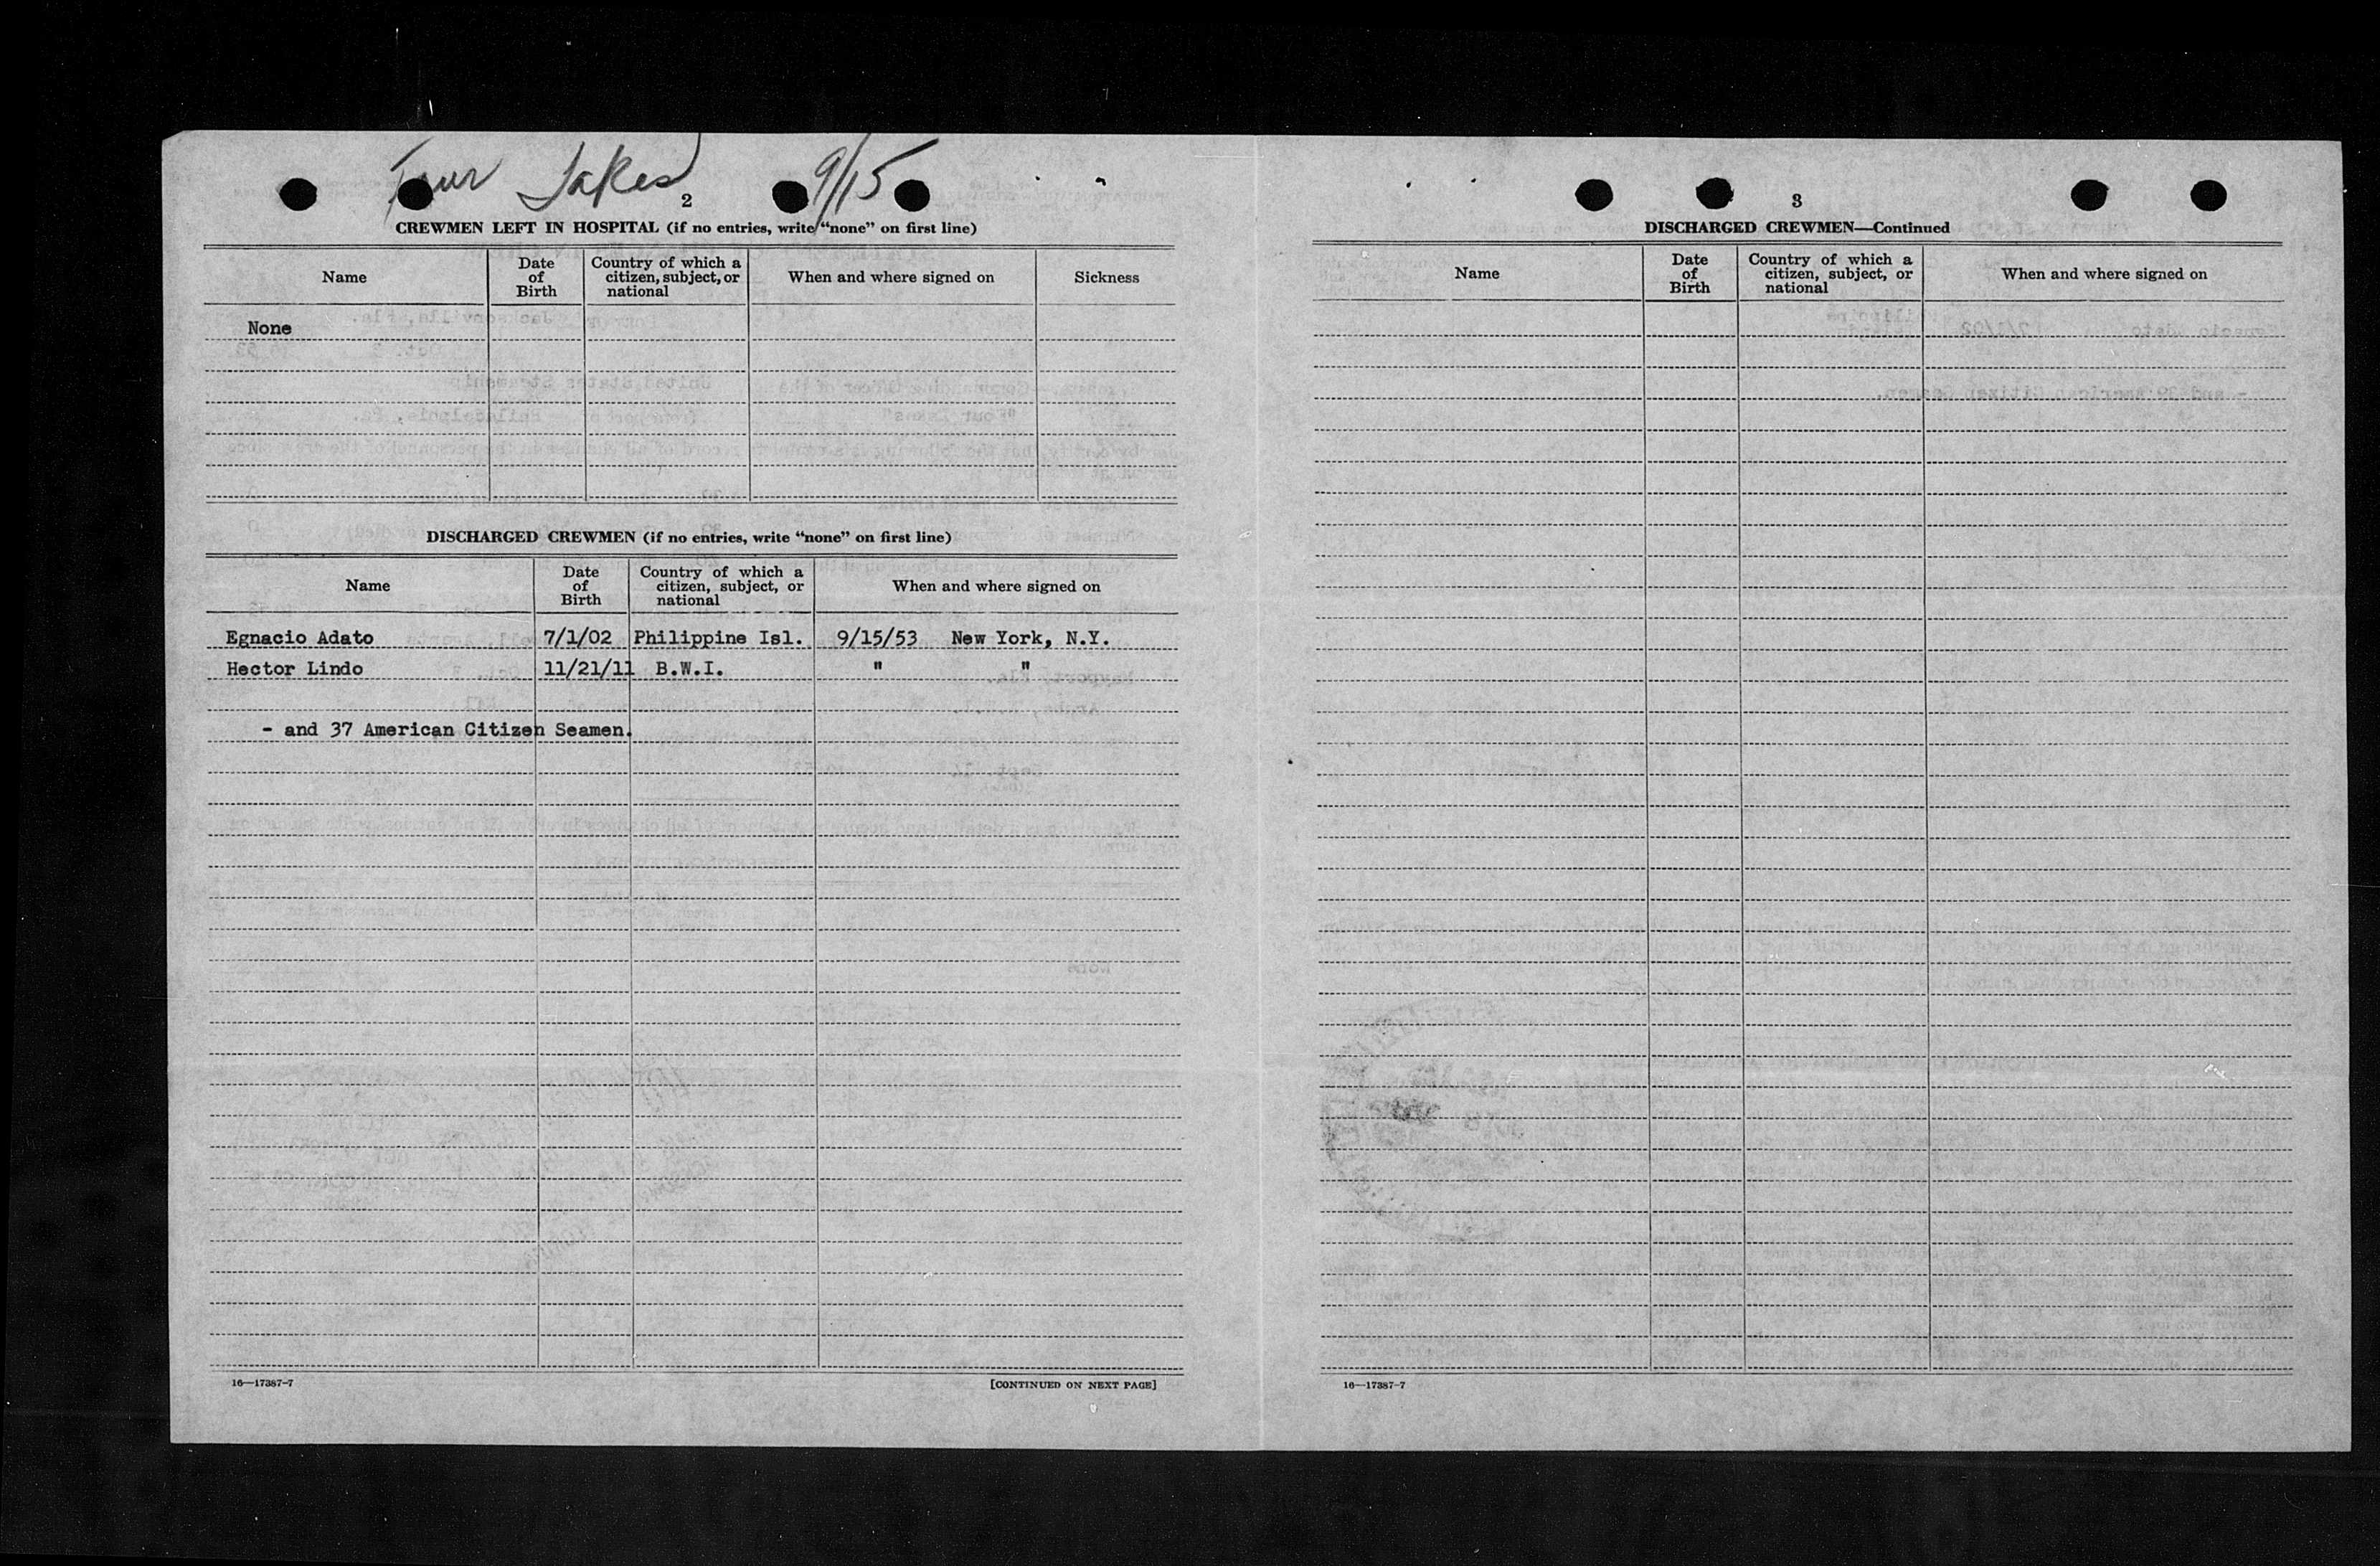 Four Lakes 9/15
2
CREWMEN LEFT IN HOSPITAL (if no entries, write "none" on first line)
Name
Date of Birth
Country of which a citizen, subject, or national
When and where signed on
Sickness
None
DISCHARGED CREWMEN (if no entries, write "none" on first line)
Name
Date of Birth
Country of which a citizen, subject, or national
When and where signed on
Egnacio Adato 7/1/02 Philippine Isl. 9/15/53 New York, N.Y.
Hector Lindo 11/21/11 B.W.I. " "
- and 37 American Citizen Seamen.
16—17387-7 [CONTINUED ON NEXT PAGE]
3
DISCHARGED CREWMEN—Continued
Name
Date of Birth
Country of which a citizen, subject, or national
When and where signed on
16—17387-7